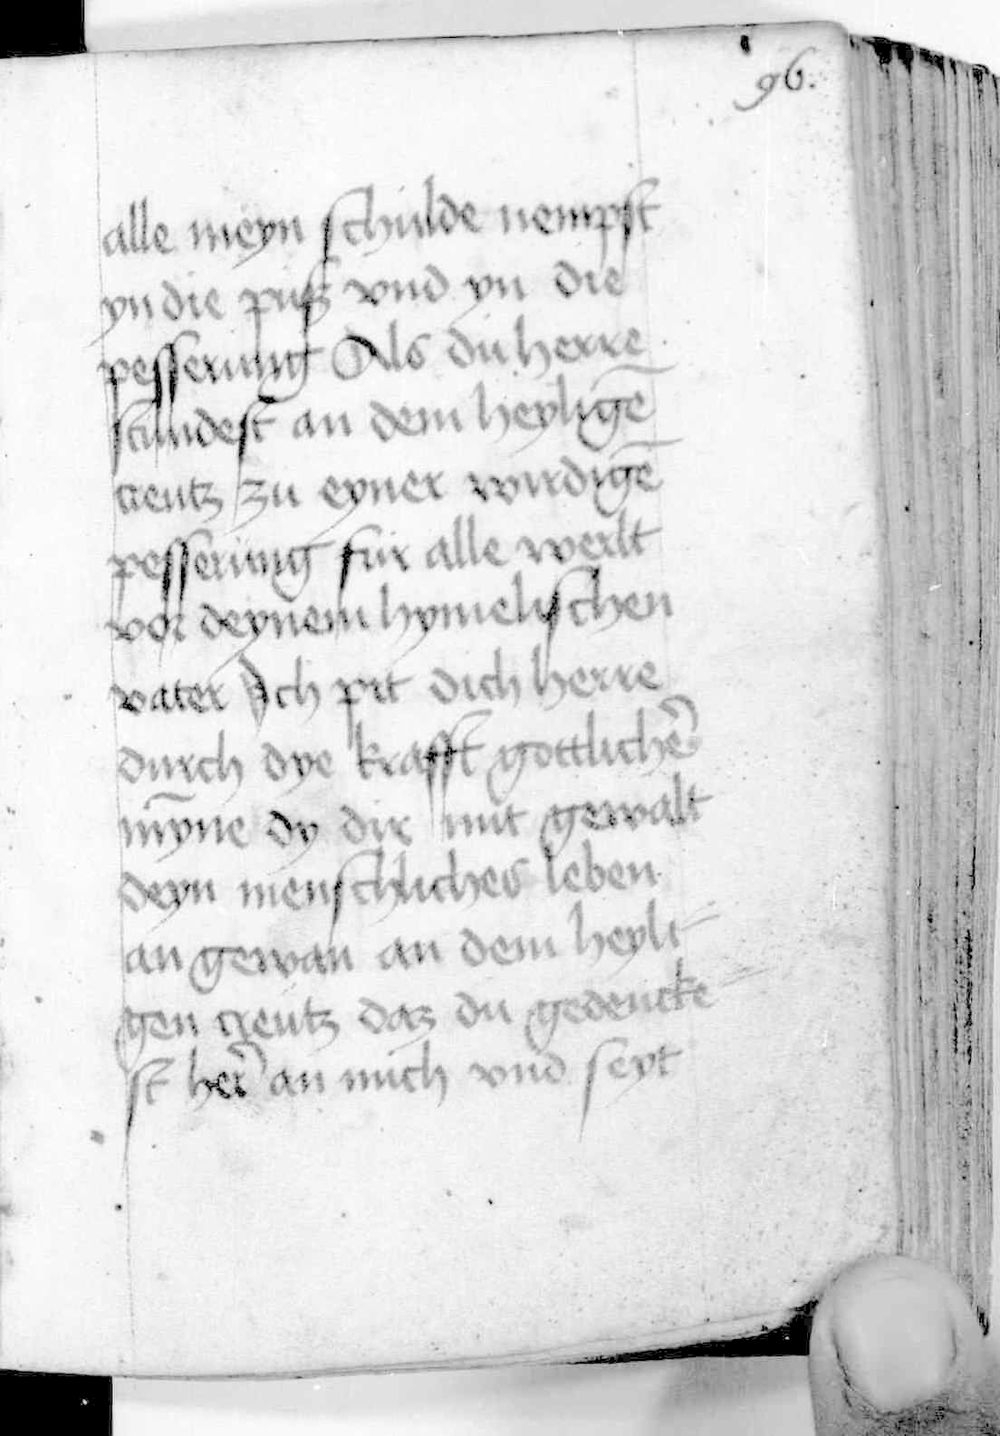 96.
alle meyn schulde nempst
yn die pusz vnd yn die
pesserung Als du herre
stundest an dem heyligē
creutz zu eyner wirdigē
pesserung fur alle werlt
vor deynem hymelischen
vater Ich pit dich herre
durch dye krafft gottlicher̄
mȳne dy dir mit gewalt
deyn menschliches leben
an gewan an dem heyli-
gen creutz daz du gedencke
st her̄ an mich vnd seyt